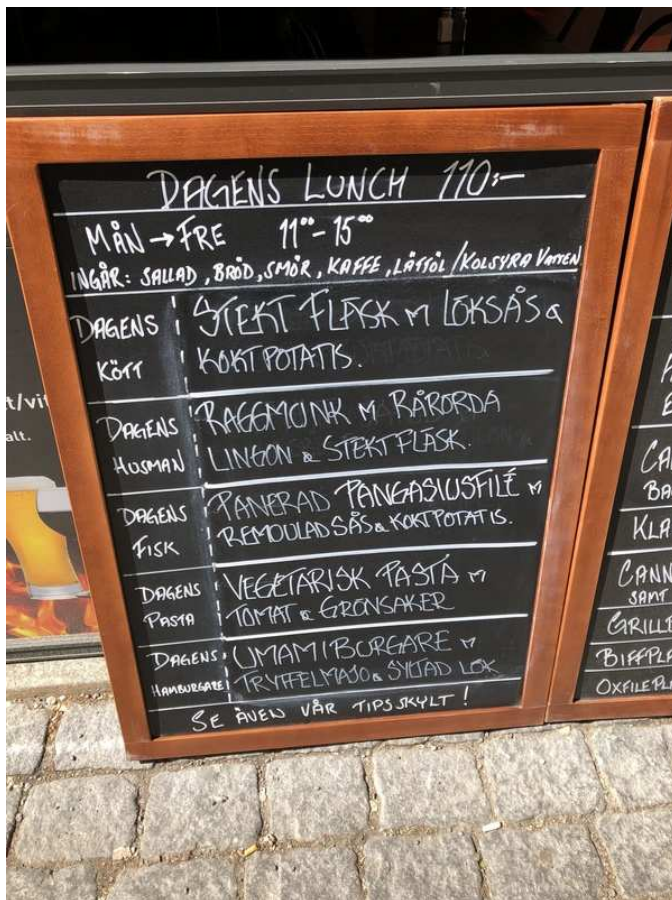 DAGENS LUNCH 110:-
MÅN → FRE 11⁰⁰ - 15⁰⁰
INGÅR: SALLAD, BRÖD, SMÖR, KAFFE, LÄTTÖL / KOLSYRA VATTEN
DAGENS KÖTT
STEKT FLÄSK M LÖKSÅS &
KOKT POTATIS.
DAGENS HUSMAN
RAGGMUNK M RÅRÖRDA
LINGON & STEKT FLÄSK.
DAGENS FISK
PANERAD PANGASIUSFILÉ M
REMOULADSÅS & KOKT POTATIS.
DAGENS PASTA
VEGETARISK PASTA M
TOMAT & GRÖNSAKER
DAGENS HAMBURGARE
UMAMIBURGARE M
TRYFFELMAJO & SYLTAD LÖK
SE ÄVEN VÅR TIPSSKYLT!
t/vit
alt.
CA
BA
KLA
CANN
SAMT
GRILLT
BIFFPLA
OXFILEPL